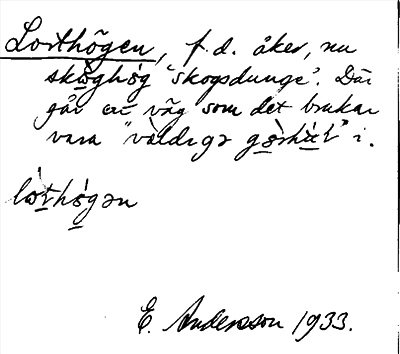 Lorthögen, f.d. åker, nu
skòghög "skogsdunge". Där
går en väg som det brukar
vara "väldigə i.
lòrthögən
E. Andersson 1933.